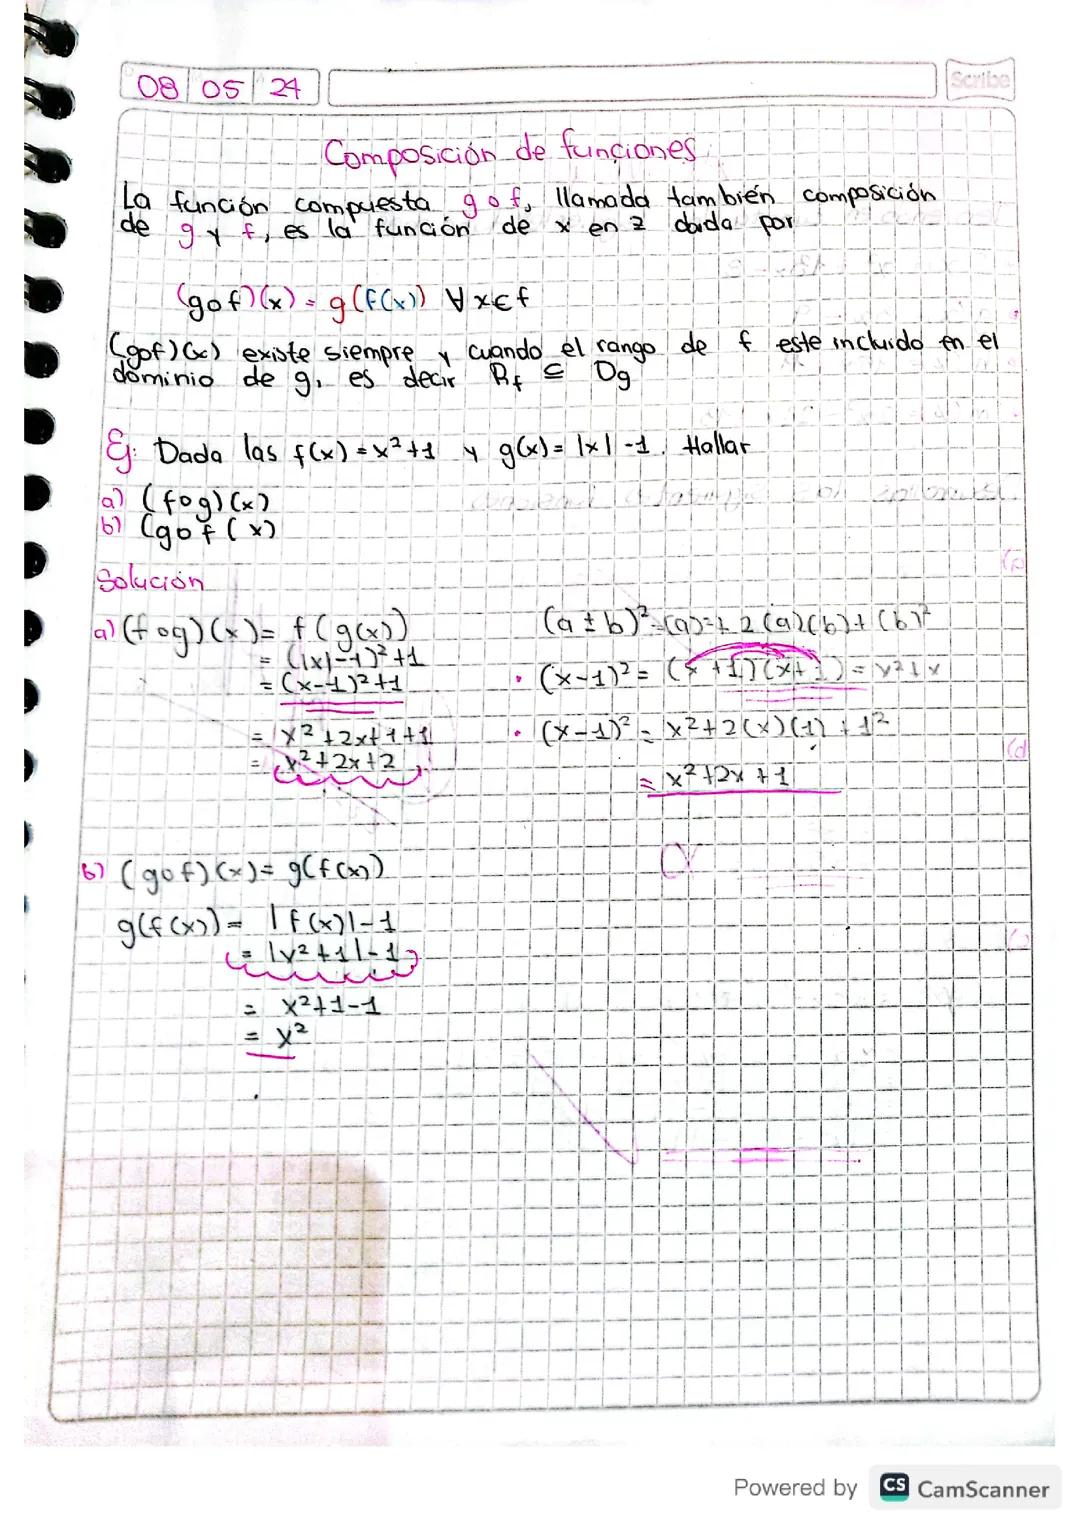 08 05 24
Scribe
Composición de funciones
La función compuesta g o f, llamada también composición
de g y f, es la función de x en z dada por
(g o f)(x) = g(f(x)) ∀ x ∈ f
(gof)(x) existe siempre y cuando el rango de f este incluido en el
dominio de g, es decir Rf ⊆ Dg
Ej: Dada las f(x) = x²+1 y g(x) = |x| -1. Hallar
a) (fog)(x)
b) (gof(x)
Solución
a) (fog)(x) = f(g(x))
= (|x|-1)²+1
= (x-1)²+1
= x²+2x+1+1
= x²+2x+2
(a ± b)² = (a)² ± 2(a)(b) + (b)²
• (x-1)² = (x+1)(x+1) = x²+x
• (x-1)² = x²+2(x)(1)+1²
= x²+2x+1
b) (gof)(x) = g(f(x))
g(f(x)) = |f(x)|-1
= |x²+1|-1
= x²+1-1
= x²
Powered by CS CamScanner